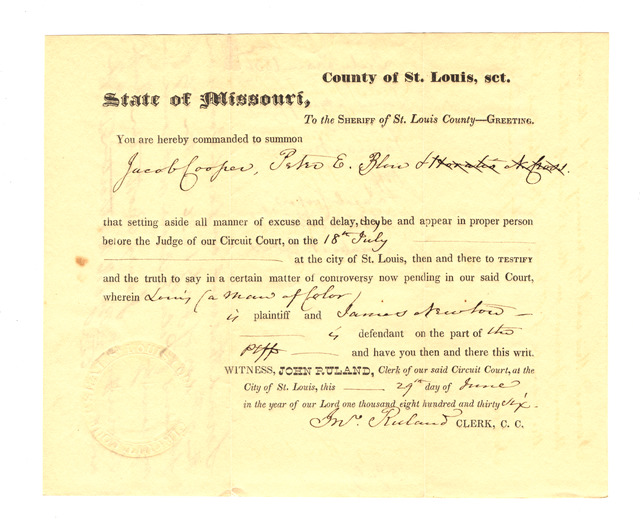 County of St. Louis, sct.
State of Missouri,
To the SHERIFF of St. Louis County—GREETING.
You are hereby commanded to summon
Jacob Cooper, Peter E. Blow & Horatio N.
that setting aside all manner of excuse and delay, they be and appear in proper person
before the Judge of our Circuit Court, on the 18th July
at the city of St. Louis, then and there to TESTIFY
and the truth to say in a certain matter of controversy now pending in our said Court,
wherein Louis (a Man of Color)
is plaintiff and James Newton
is defendant on the part of the
plff and have you then and there this writ.
WITNESS, JOHN RULAND, Clerk of our said Circuit Court, at the
City of St. Louis, this 29th day of June
in the year of our Lord one thousand eight hundred and thirty six.
Jno. Ruland CLERK, C. C.